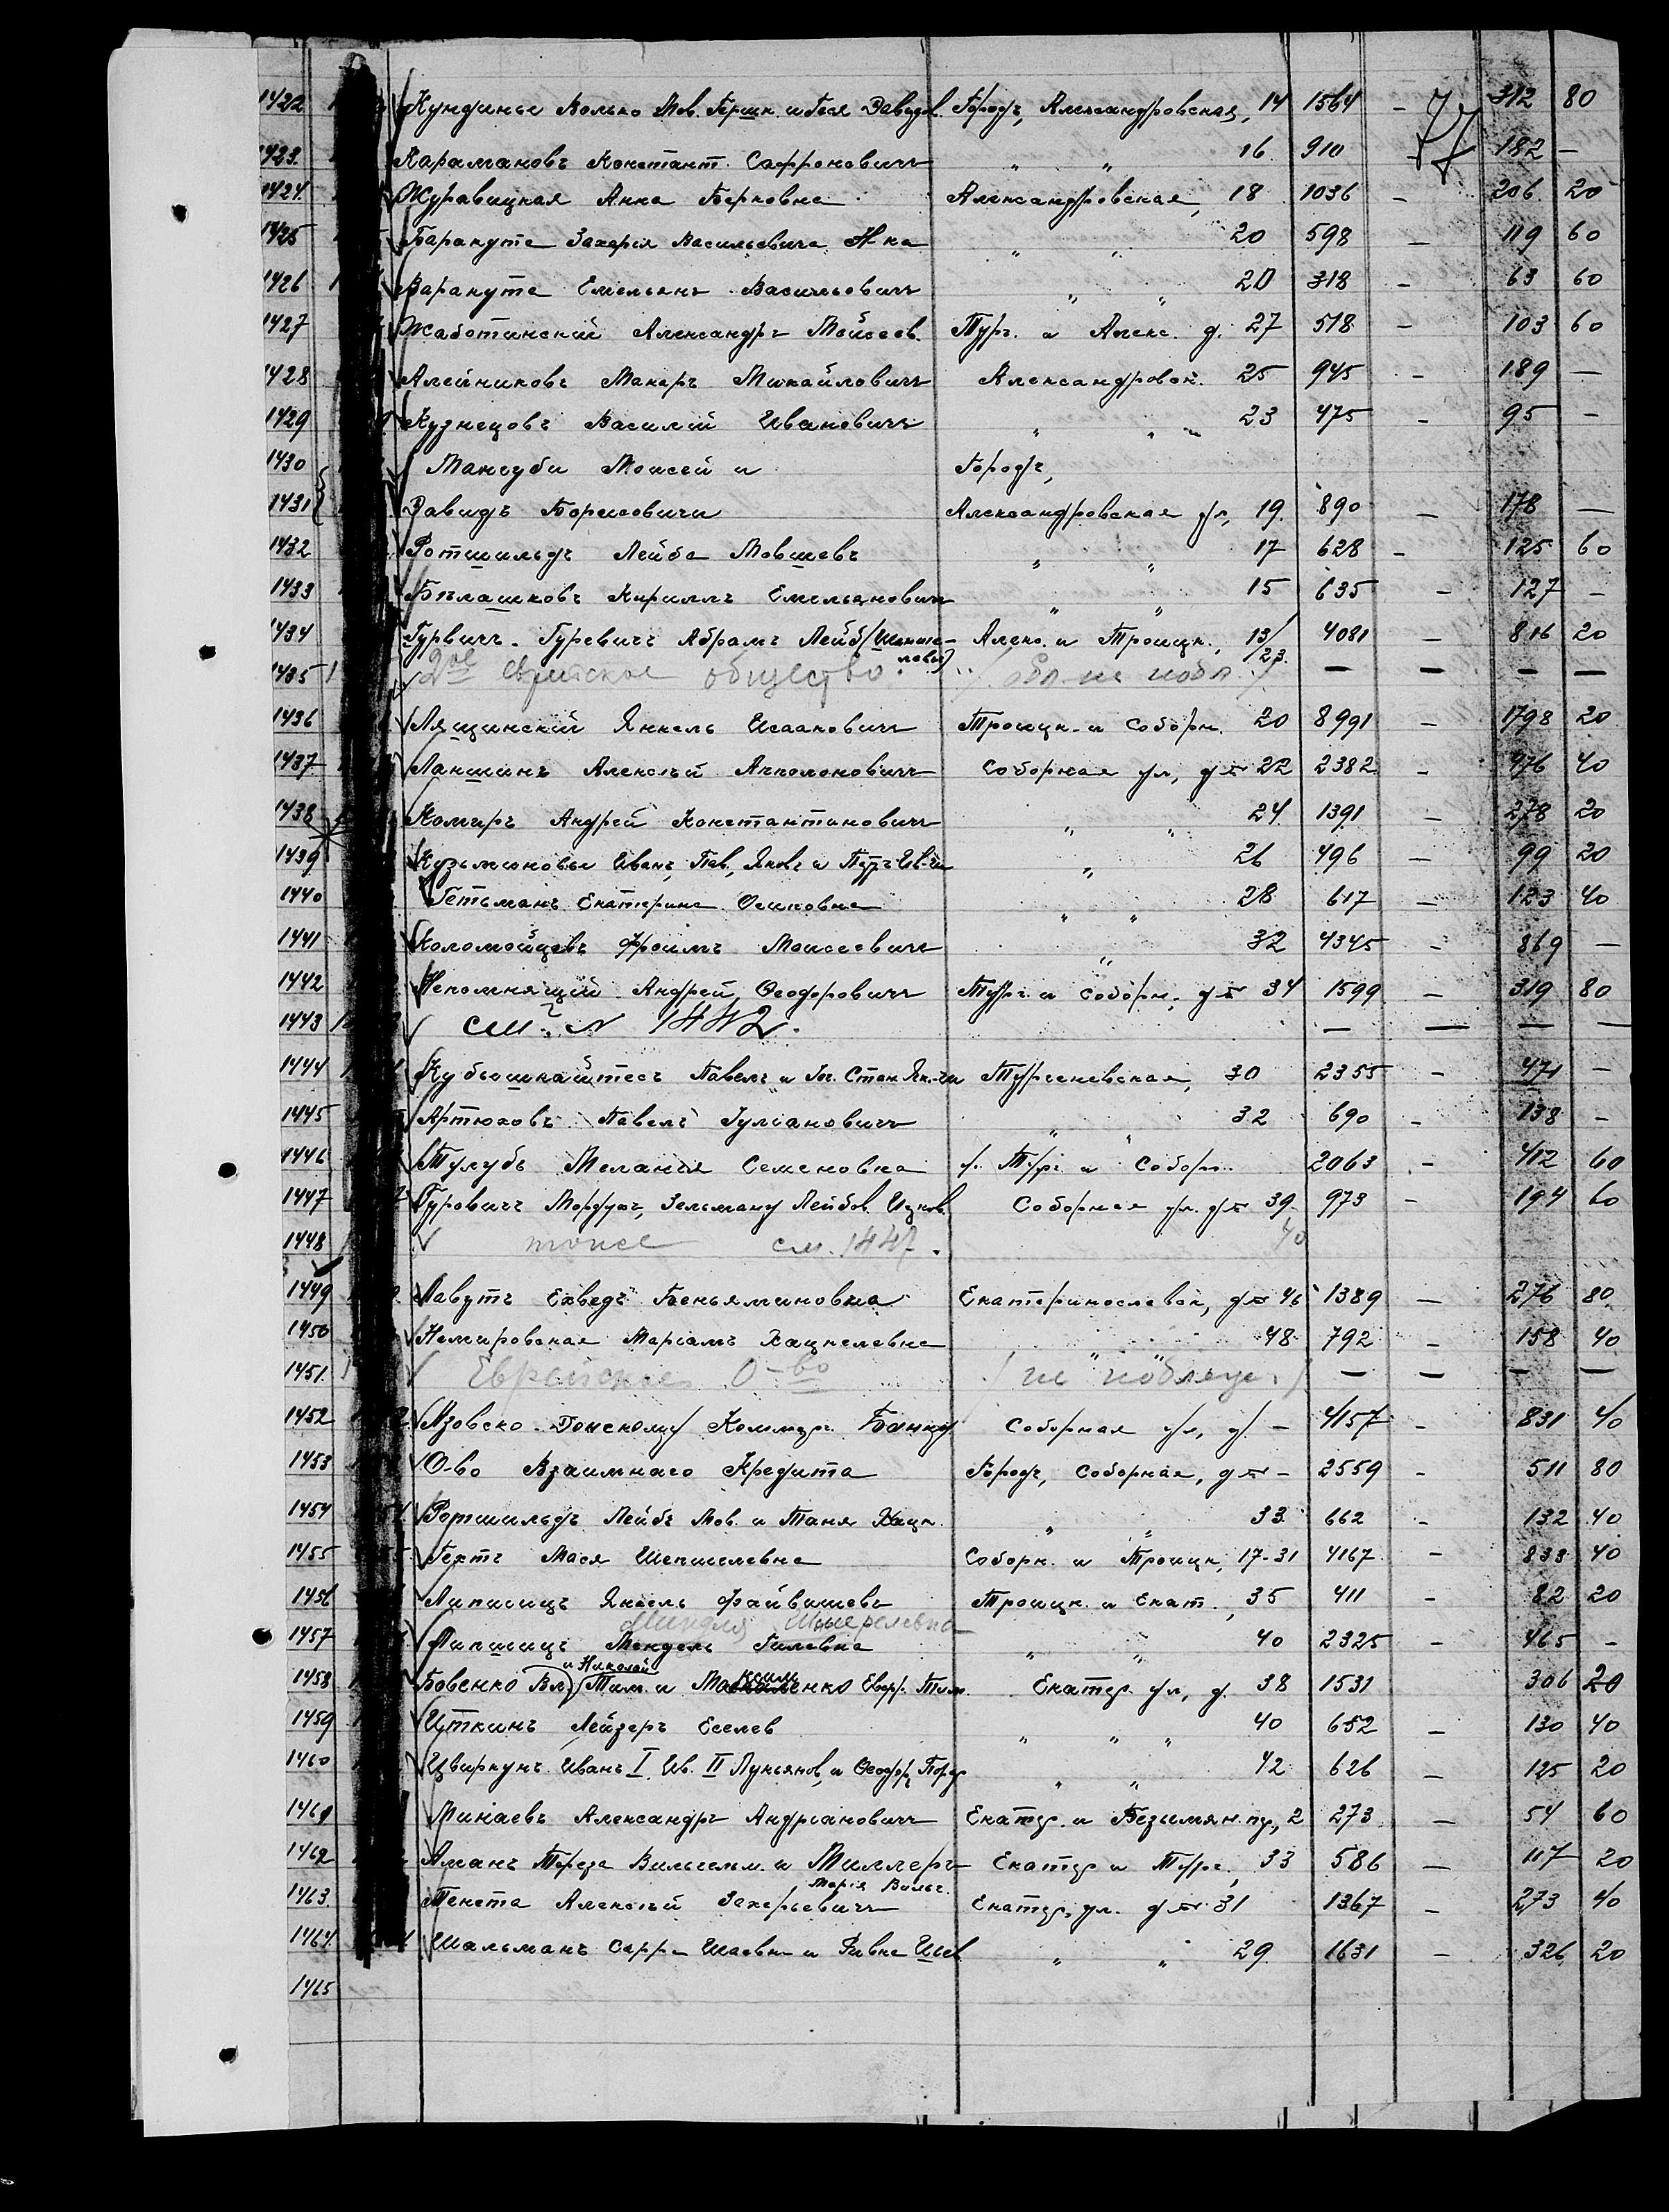 1422 Кундины Волько Мов. Гершк. и Гвся Давидов. Городъ, Александровская, 14 1564 - 312 80
77
1423. Карамановъ Констант. Сафроновичъ " " 16 910 - 182 -
1424. Журавицкая Анна Берковна Александровская, 18 1036 - 206 20
1425 Баракута Захарія Васильевича Н-ка " " 20 598 - 119 60
1426 Баракута Емельянъ Васильевичъ " " 20 318 - 63 60
1427 Жаботинскій Александръ Мойсеев. Тург. и Алекс. д. 27 518 - 103 60
1428 Алейниковъ Макаръ Михайловичъ Александровск. 25 945 - 189 -
1429 Кузнецовъ Василій Ивановичъ " " 23 475 - 95 -
1430 Мангуби Моисей и Городъ,
1431 Давидъ Борисовичи Александровская ул, 19. 890 - 178 -
1432 Ротшильдъ Лейба Мовшевъ " " 17 628 - 125 60
1433 Бѣлашковъ Кириллъ Емельяновичъ " " 15 635 - 127 -
1434 Гурвичъ-Гуревичъ Абрамъ Лейб/ Алекс. и Троицк., 13/23. 4081 - 816 20
1435 2ое еврейское общество. / обл. не подл / - - - -
1436 Лящинскій Янкель Исааковичъ Троицк. и Соборн. 20 8991 - 1798 20
1437 Лакшинъ Алексѣй Апполоновичъ Соборная ул, д. 22 2382 - 476 40
1438 Комиръ Андрей Константиновичъ " " 24 1391 - 278 20
1439 Кузьминовы Иванъ, Пав., Яковъ и Петръ Ив-чи " 26 496 - 99 20
1440 Гетьманъ Екатерина Осиповна " " 28 617 - 123 40
1441 Коломойцевъ Фроимъ Моисеевичъ " 32 4345 - 869 -
1442 Непомнящій Андрей Ѳеодоровичъ Тург. и Соборн., д. 34 1599 - 319 80
1443 см. N 1442. - - - -
1444 Кубышкайтесъ Павелъ и Стан. Як-чи Тургеневская, 30 2355 - 471 -
1445 Артюховъ Павелъ Гуліановичъ " " 32 690 - 138 -
1446 Тулубъ Меланья Семеновна у. Тург. и Соборн. 2063 - 412 60
1447 Гуровичъ Мордухъ, Зельману Лейбов. Ицков. Соборная ул. д. 39. 973 - 194 60
1448 тоже см. 1447. 40
1449 Лавутъ Ехведъ Беньяминовна Екатеринославск, д. 46 1389 - 276 80
1450 Немировская Маріамъ Хацкелевна " " 48 792 - 158 40
1451. Еврейское О-во / не подлеж. / - - - -
1452 Азовско-Донскому Коммерч. Банку Соборная ул, д. - 4157 - 831 40
1453 О-во Взаимнаго Кредита Городъ, Соборная, д. - 2559 - 511 80
1454 Ротшильдъ Лейбъ Мов. и Таня Хацк. " " 33 662 - 132 40
1455 Гехтъ Мася Шепшелевна Соборн. и Троицк, 17-31 4167 - 833 40
1456 Липисицъ Янкель Файвишевъ Троицк. и Екат., 35 411 - 82 20
1457 Липшицъ Мендель Гилевна " " 40 2325 - 465 -
и Николай
1458 Бовенко Вл. Тим. и Максименко Евфр. Тим. Екатер. ул, д. 38 1531 306 20
1459 Иткинъ Лейзеръ Еселев " " " 40 652 - 130 40
1460 Цвиркунъ Иванъ I, Ив. II Лукьянов, и Ѳеодоръ " " 42 626 - 125 20
1461 Минаевъ Александръ Андріановичъ Екатер. и Безымян. пер, 2 273 - 54 60
1462 Аманъ Тереза Вильгельм. и Миллеръ Екатер и Тург., 33 586 - 117 20
Марія Вильг.
1463. Тенета Алексѣй Захарьевичъ Екатер. ул. д. 31 1367 - 273 40
1464. Шальманъ Сарра Шаевна и Ривка Шаев " " 29 1631 - 326 20
1465